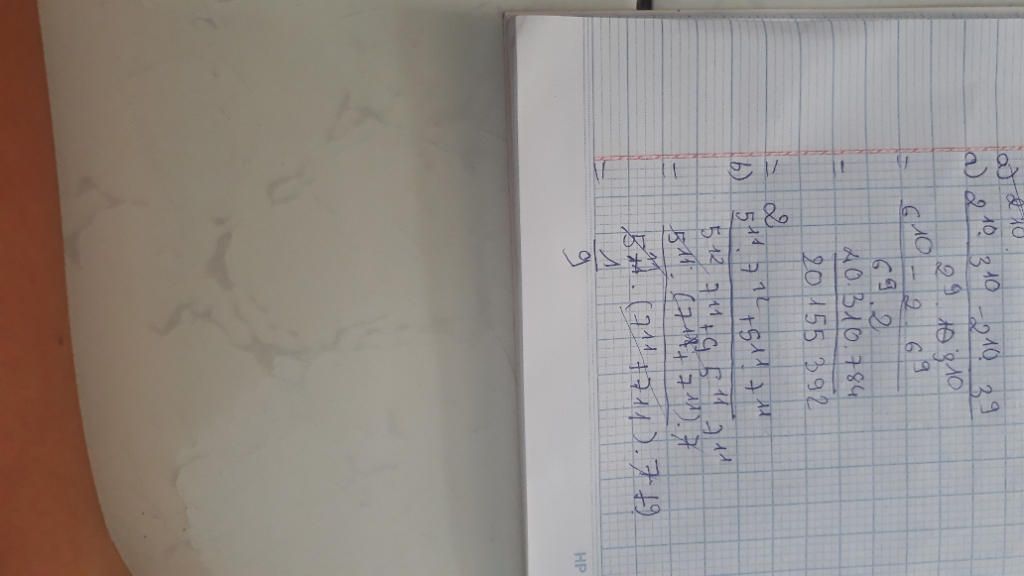 a) 2 10.
a) 2^10. 3^10 - 2^10. 3^9
2^9. 3^10
= 6^10 - 2. 6^9
6^9. 2
= 40 310 784
20 155 392
= 2
b) 5^11. 7^12 + 5^11. 7^11
5^12. 7^11 + 9. 5^11. 7^11
= 5^11. (7^11 + 7^11). 7
5^11. (7^11 + 7^11). 7 + 9
= 1
9
HP